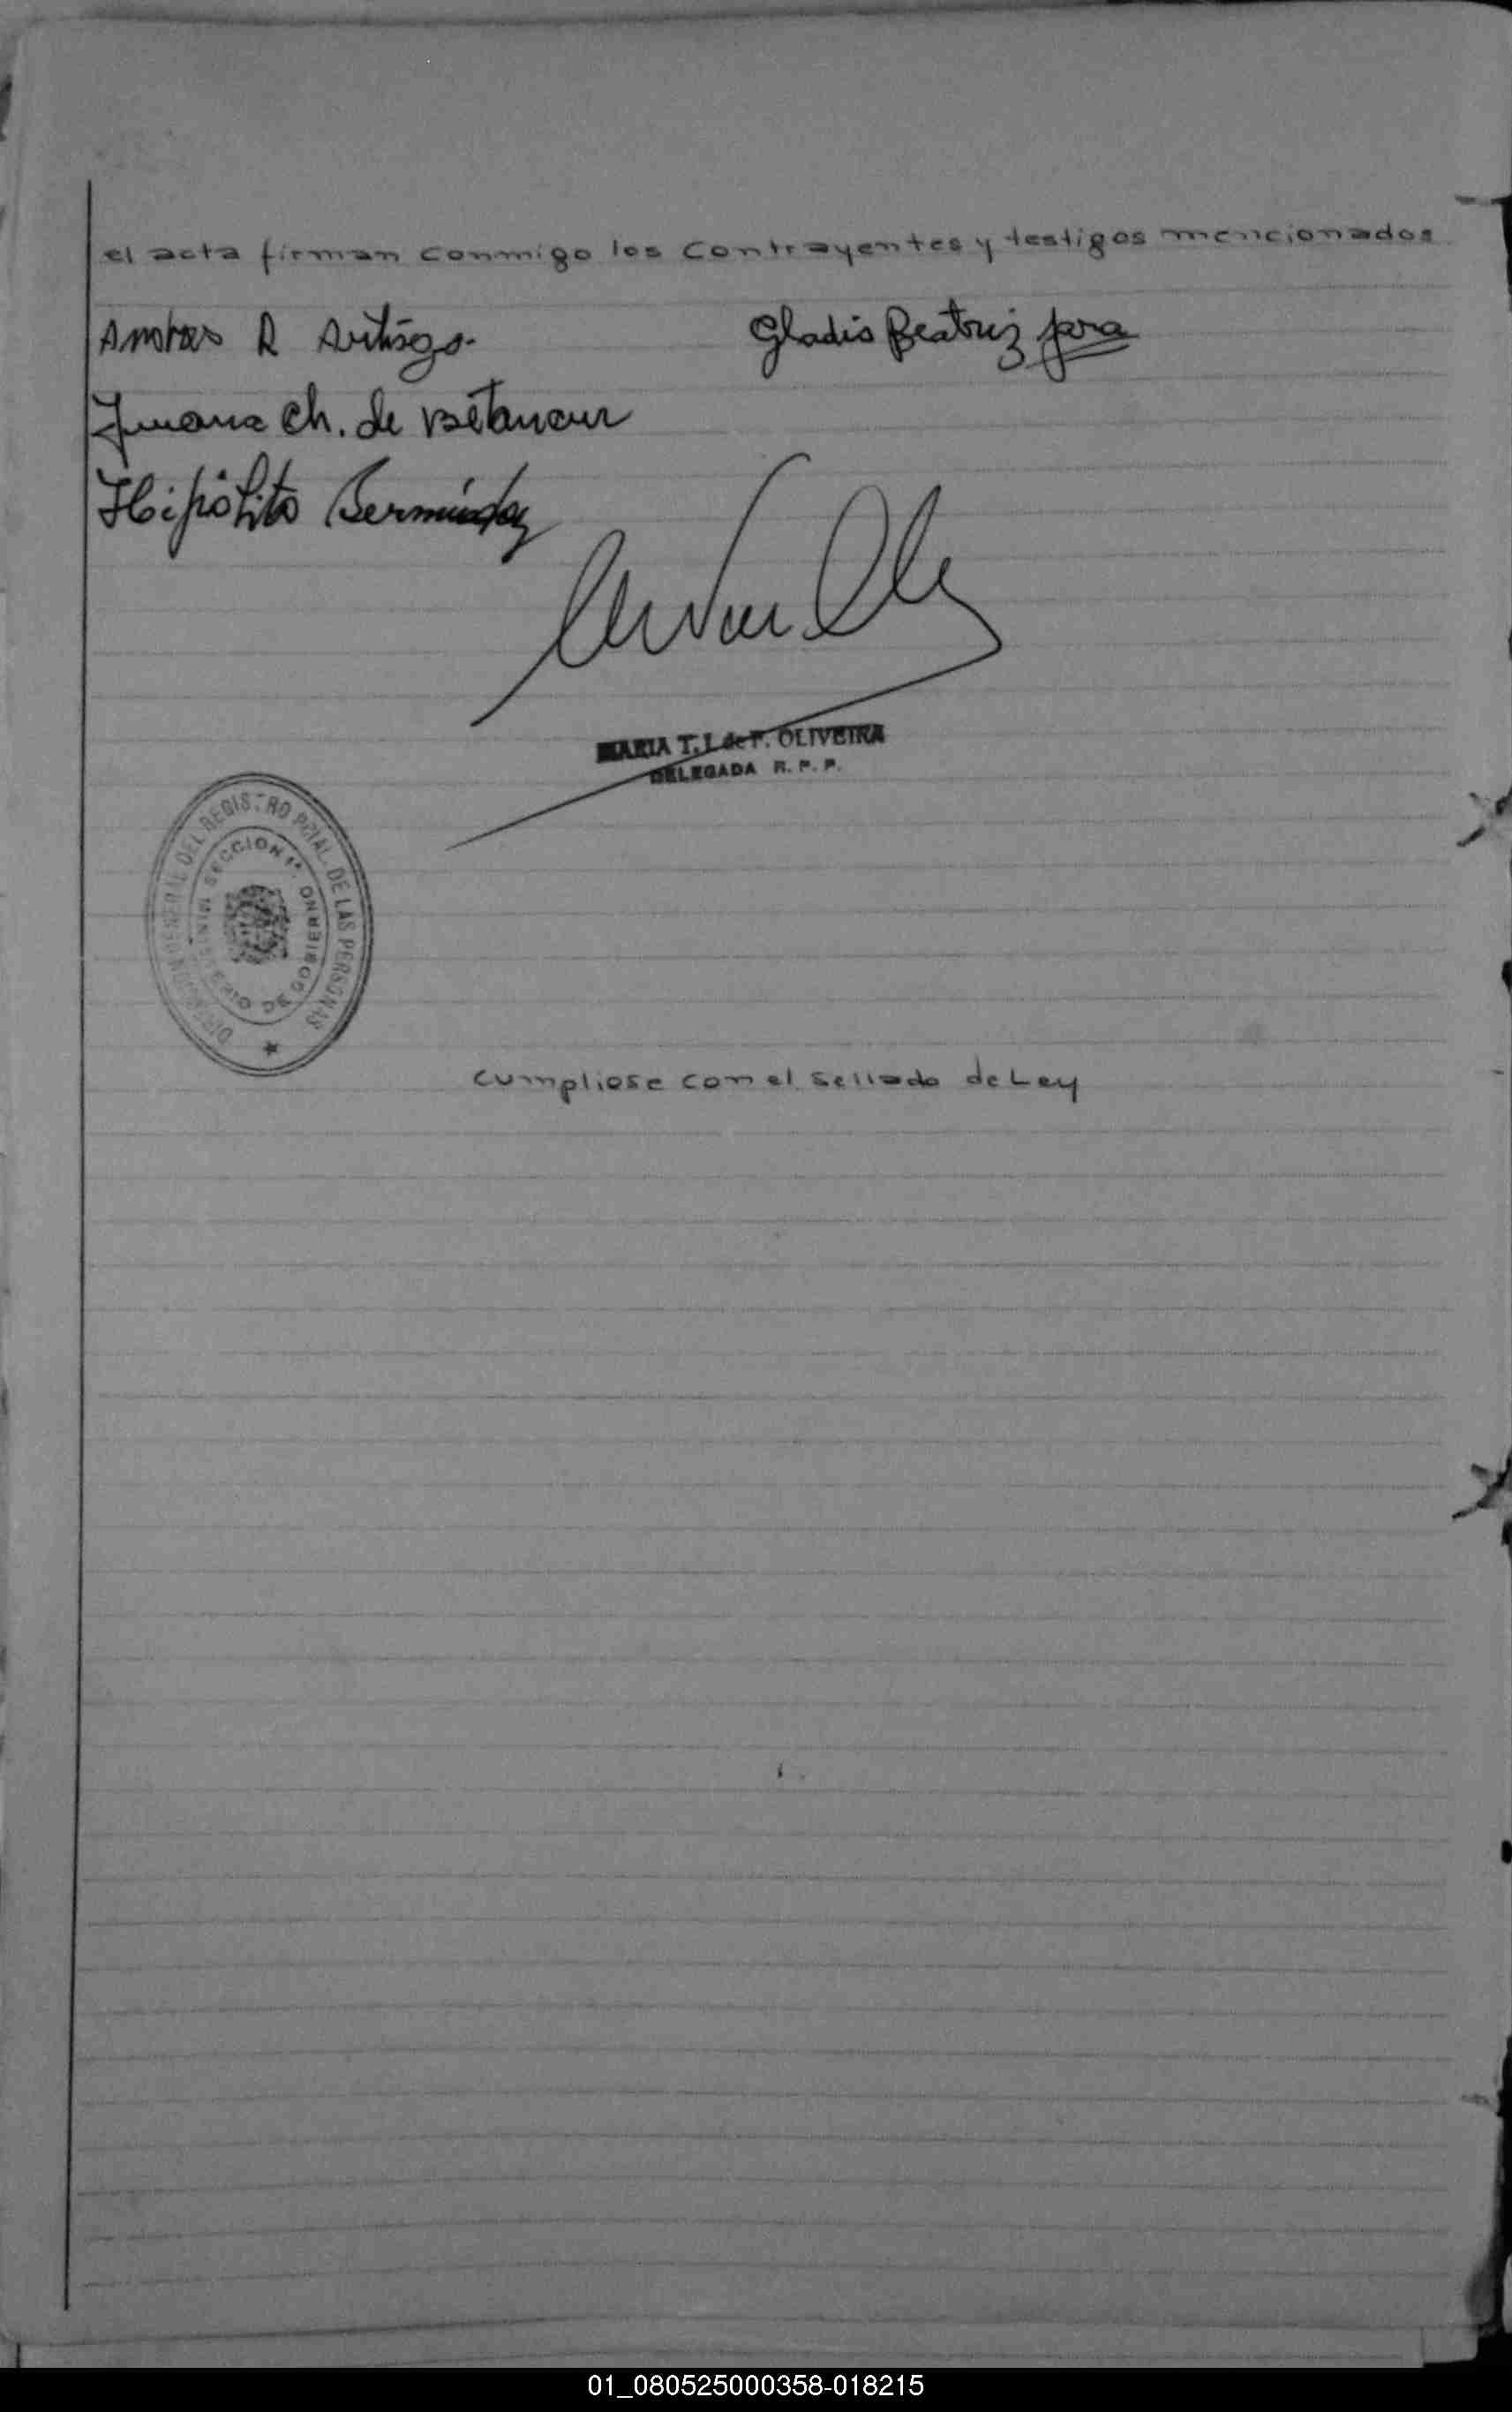 el acta firman conmigo los contrayentes y testigos mencionados
Andres R Artigo.
Gladis Beatriz Jara
Juana Ch. de Betancur
Hipólito Bermúdez
MARIA T. I. de F. OLIVEIRA
DELEGADA R. P. P.
DIRECCION GENERAL DEL REGISTRO PCIAL. DE LAS PERSONAS
MINISTERIO DE GOBIERNO
SECCION
cumpliose con el sellado de Ley
01_080525000358-018215